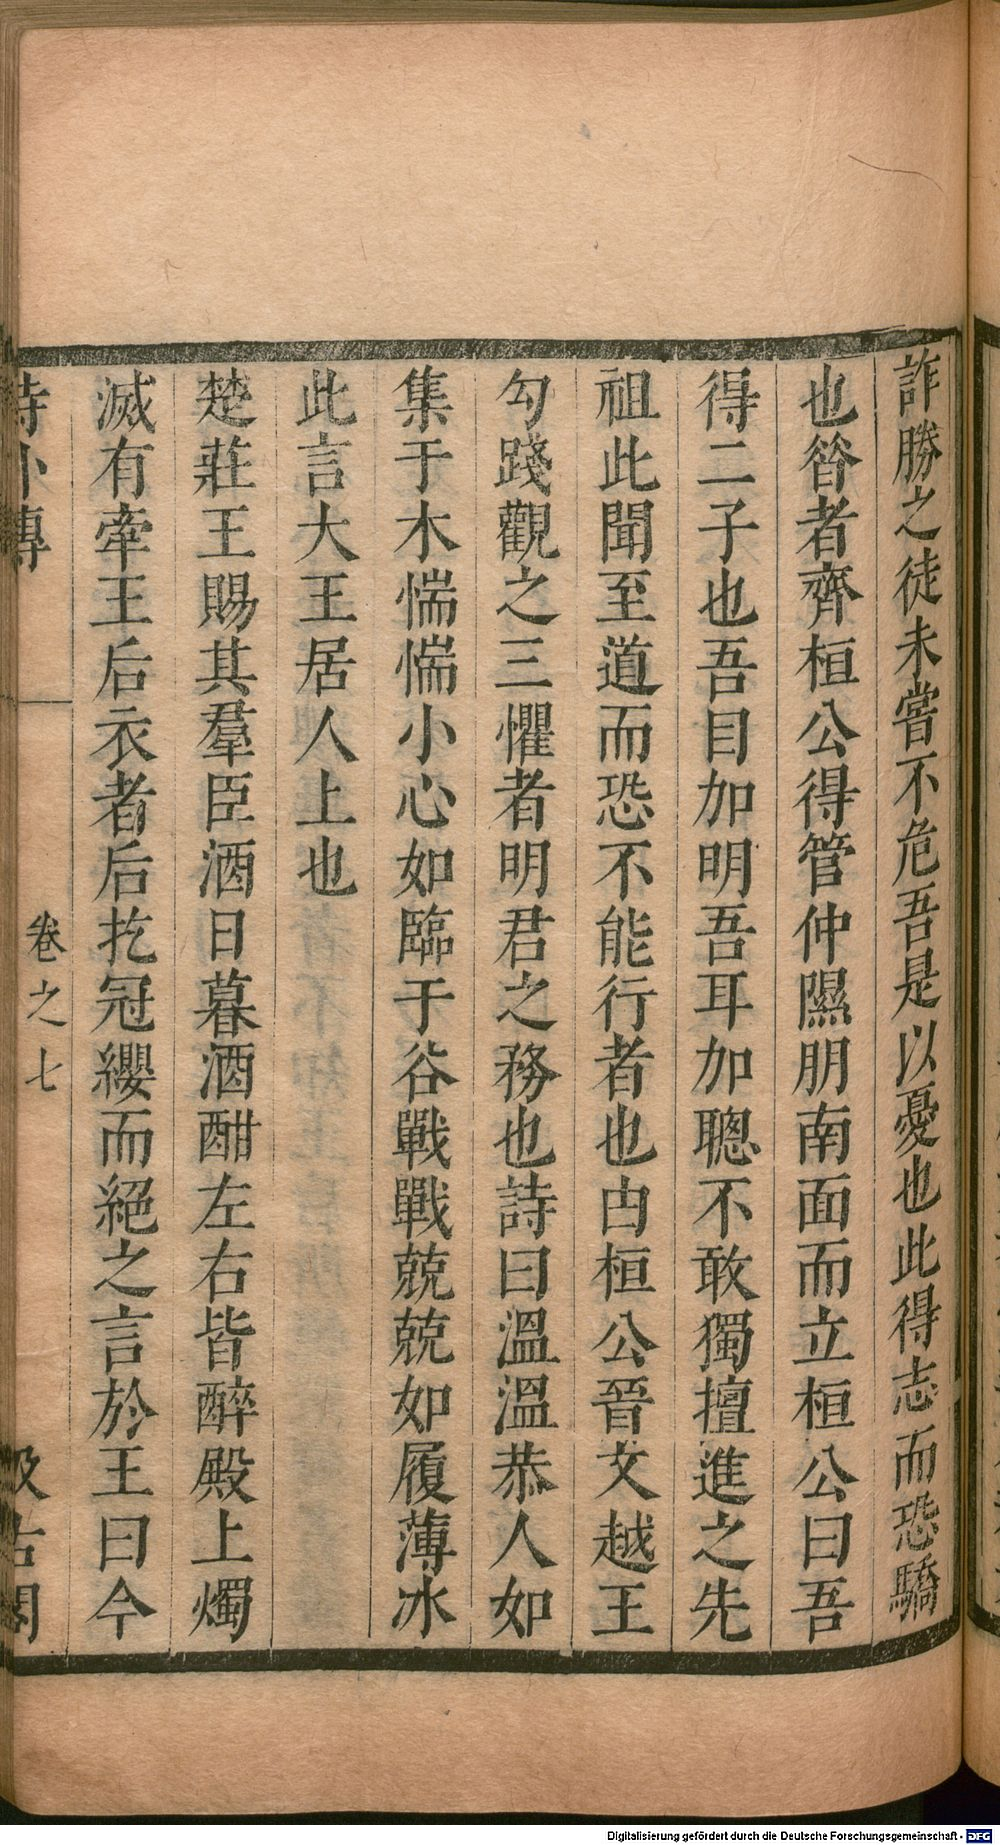 詐勝之徒未嘗不危吾是以憂也此得志而恐驕
也昝者齊桓公得管仲隰朋南面而立桓公曰吾
得二子也吾目加明吾耳加聰不敢獨擅進之先
祖此聞至道而恐不能行者也由桓公晉文越王
勾踐觀之三懼者明君之務也詩曰溫溫恭人如
集于木惴惴小心如臨于谷戰戰兢兢如履薄冰
此言大王居人上也
楚莊王賜其羣臣酒日暮酒酣左右皆醉殿上燭
滅有牽王后衣者后扢冠纓而絕之言於王曰今
詩外傳
卷之七
汲古閣
Digitalisierung gefördert durch die Deutsche Forschungsgemeinschaft - DFG